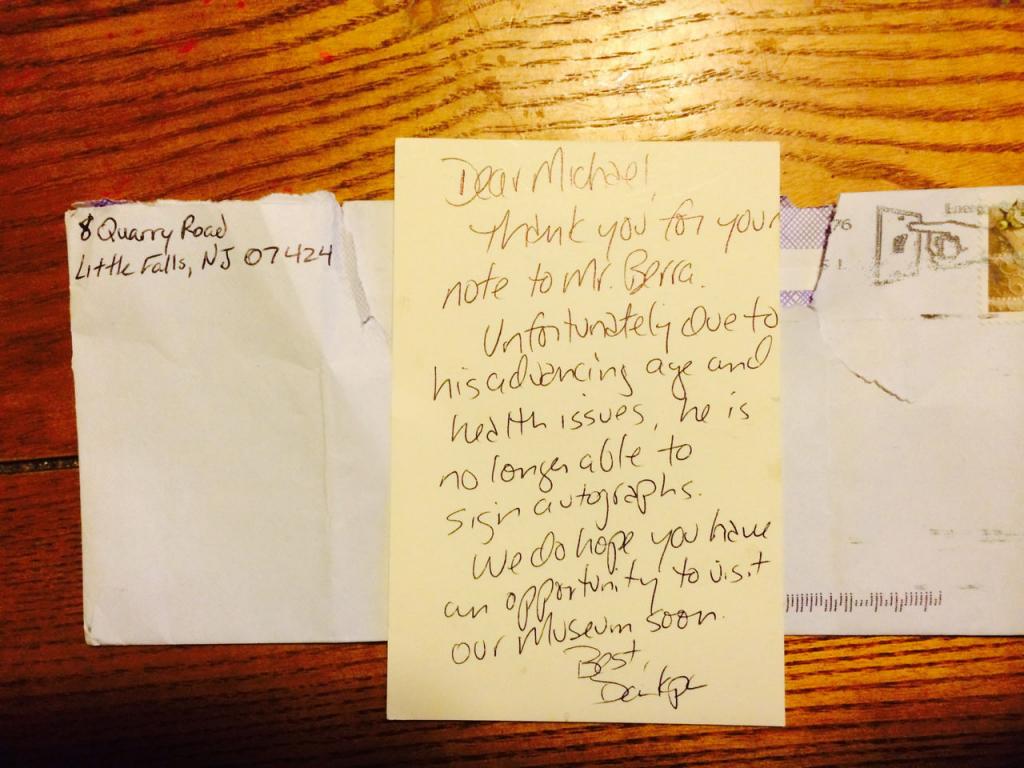 8 Quarry Road
Little Falls, NJ 07424
Dear Michael,
Thank you for your
note to Mr. Berra.
Unfortunately due to
his advancing age and
health issues, he is
no longer able to
sign autographs.
We do hope you have
an opportunity to visit
our Museum soon.
Best,
76